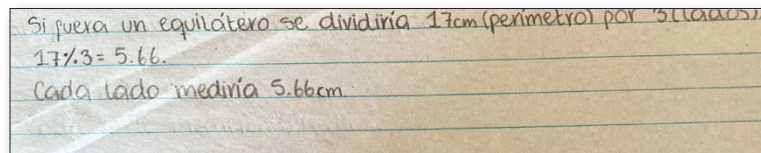 Si fuera un equilátero se dividiría 17cm (perímetro) por 3 (lados),
17%3= 5.66.
Cada lado mediría 5.66cm